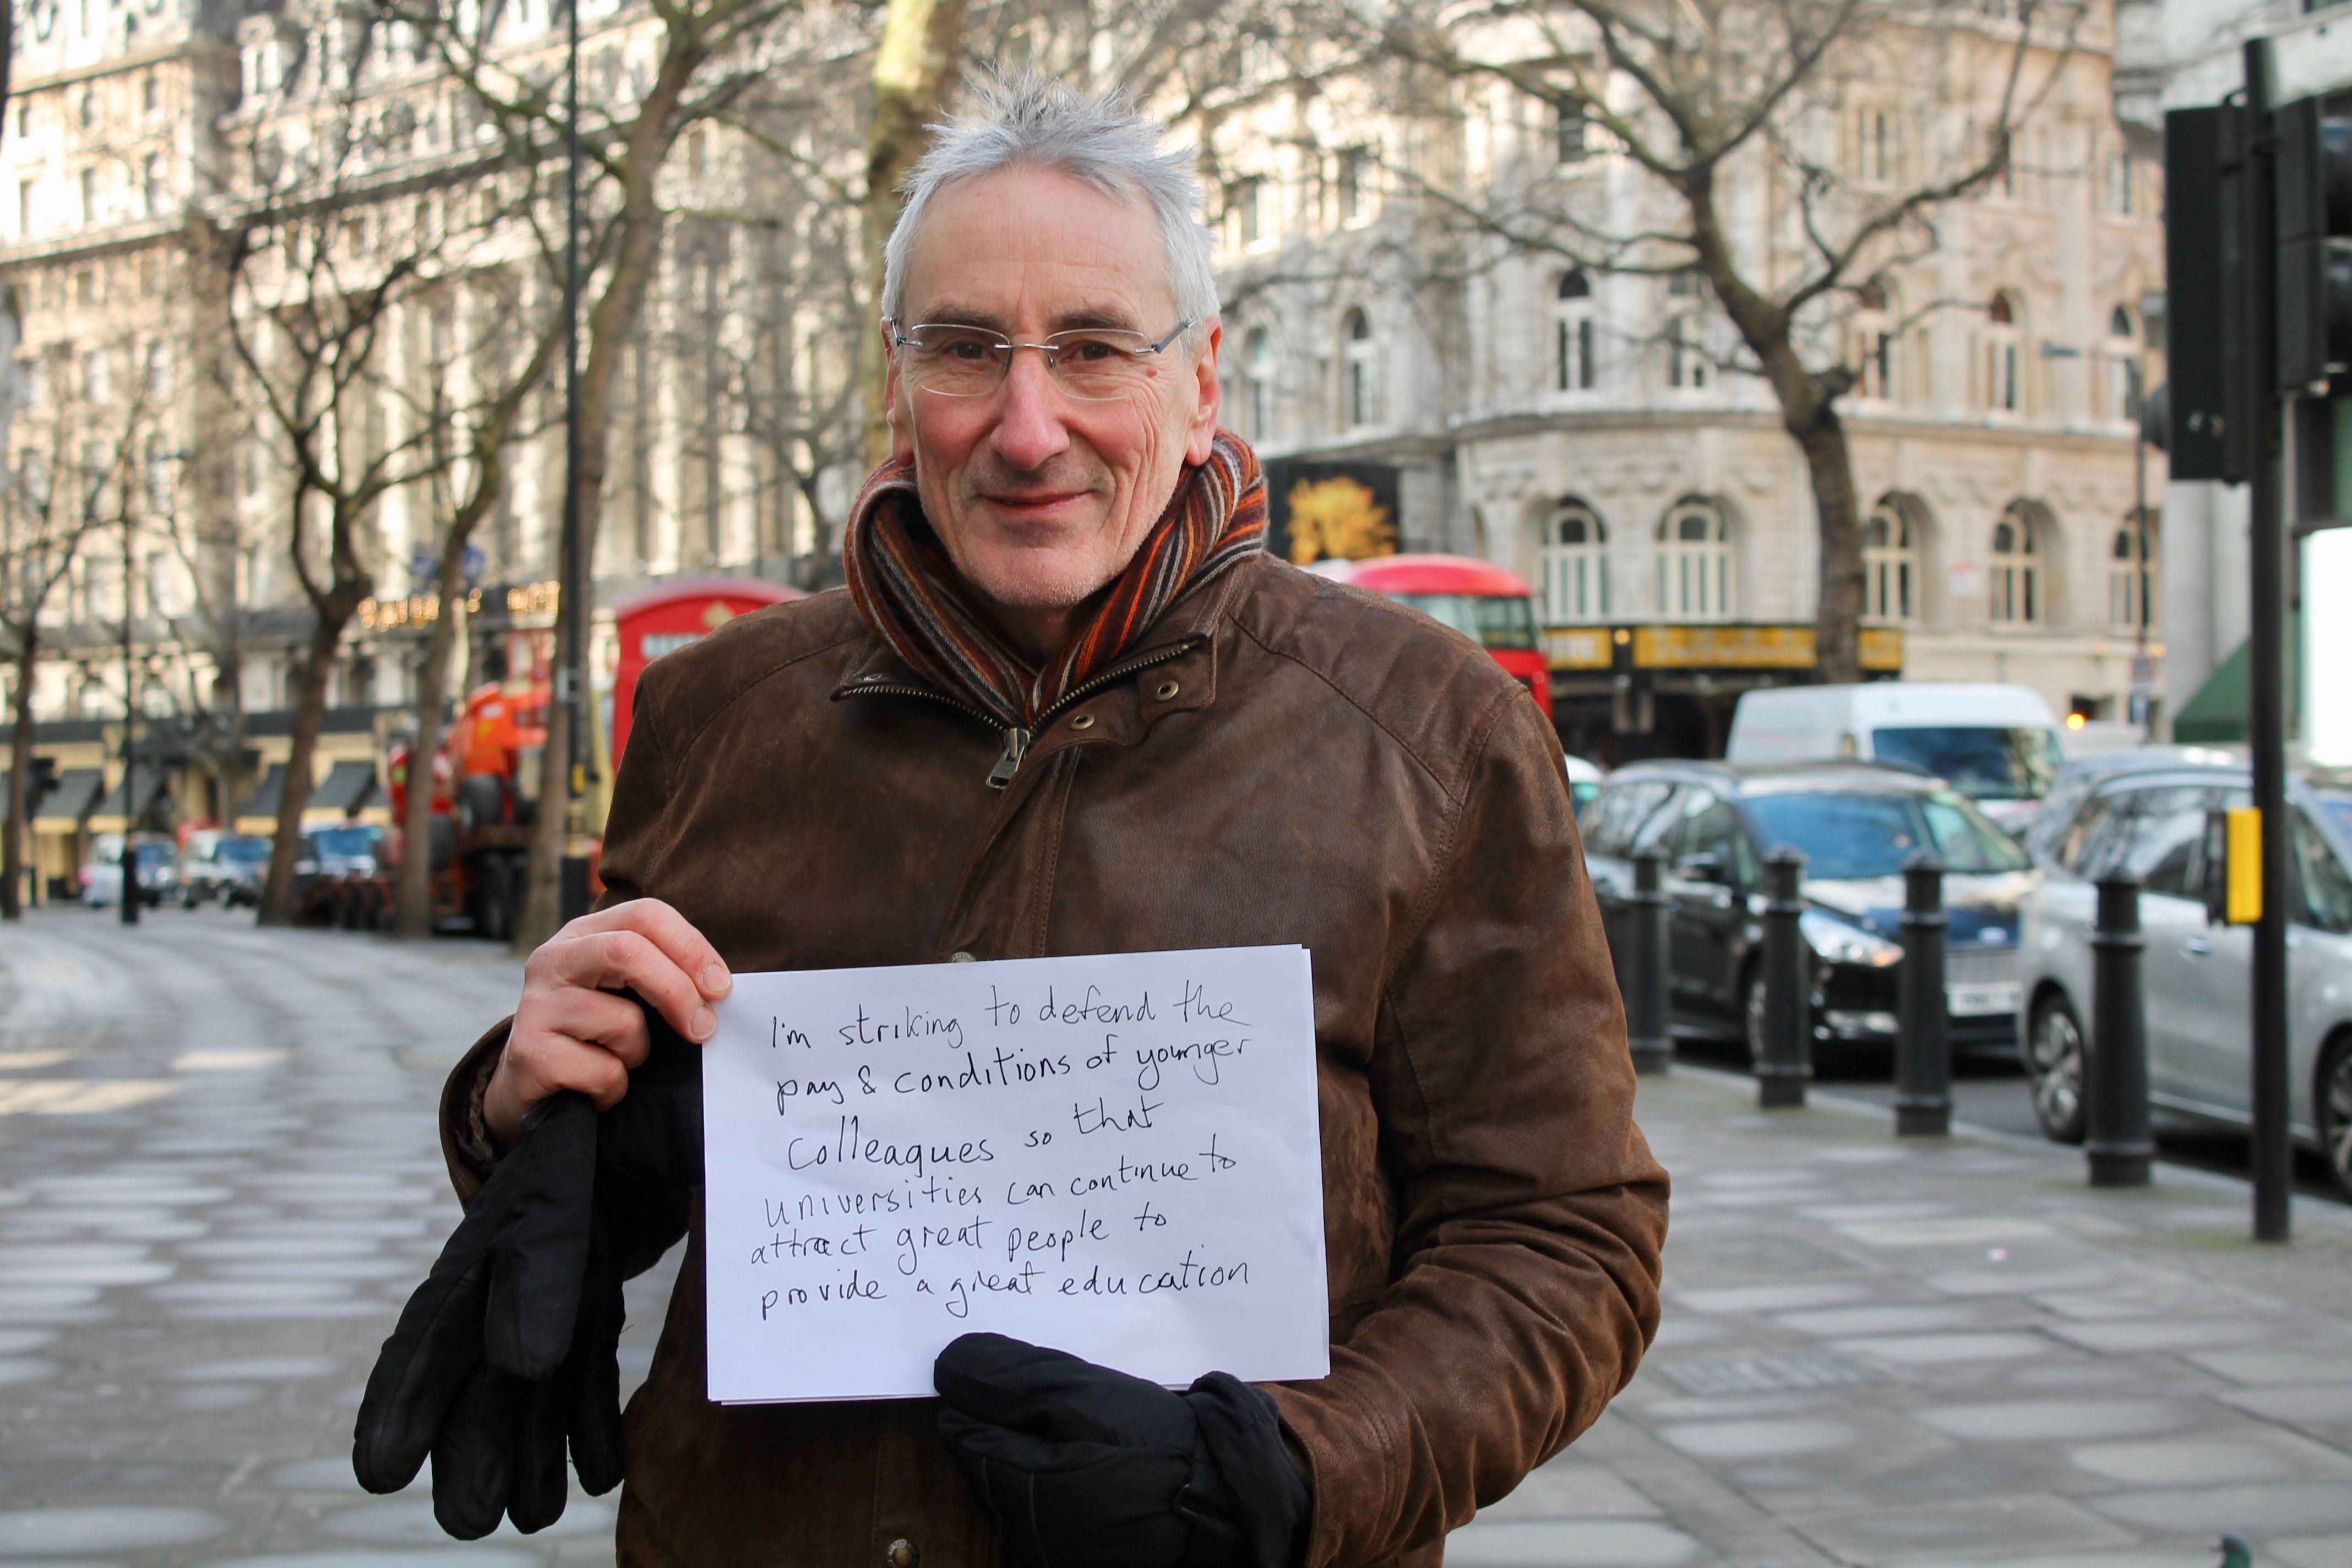 I'm striking to defend the
pay & conditions of younger
colleagues so that
universities can continue to
attract great people to
provide a great education